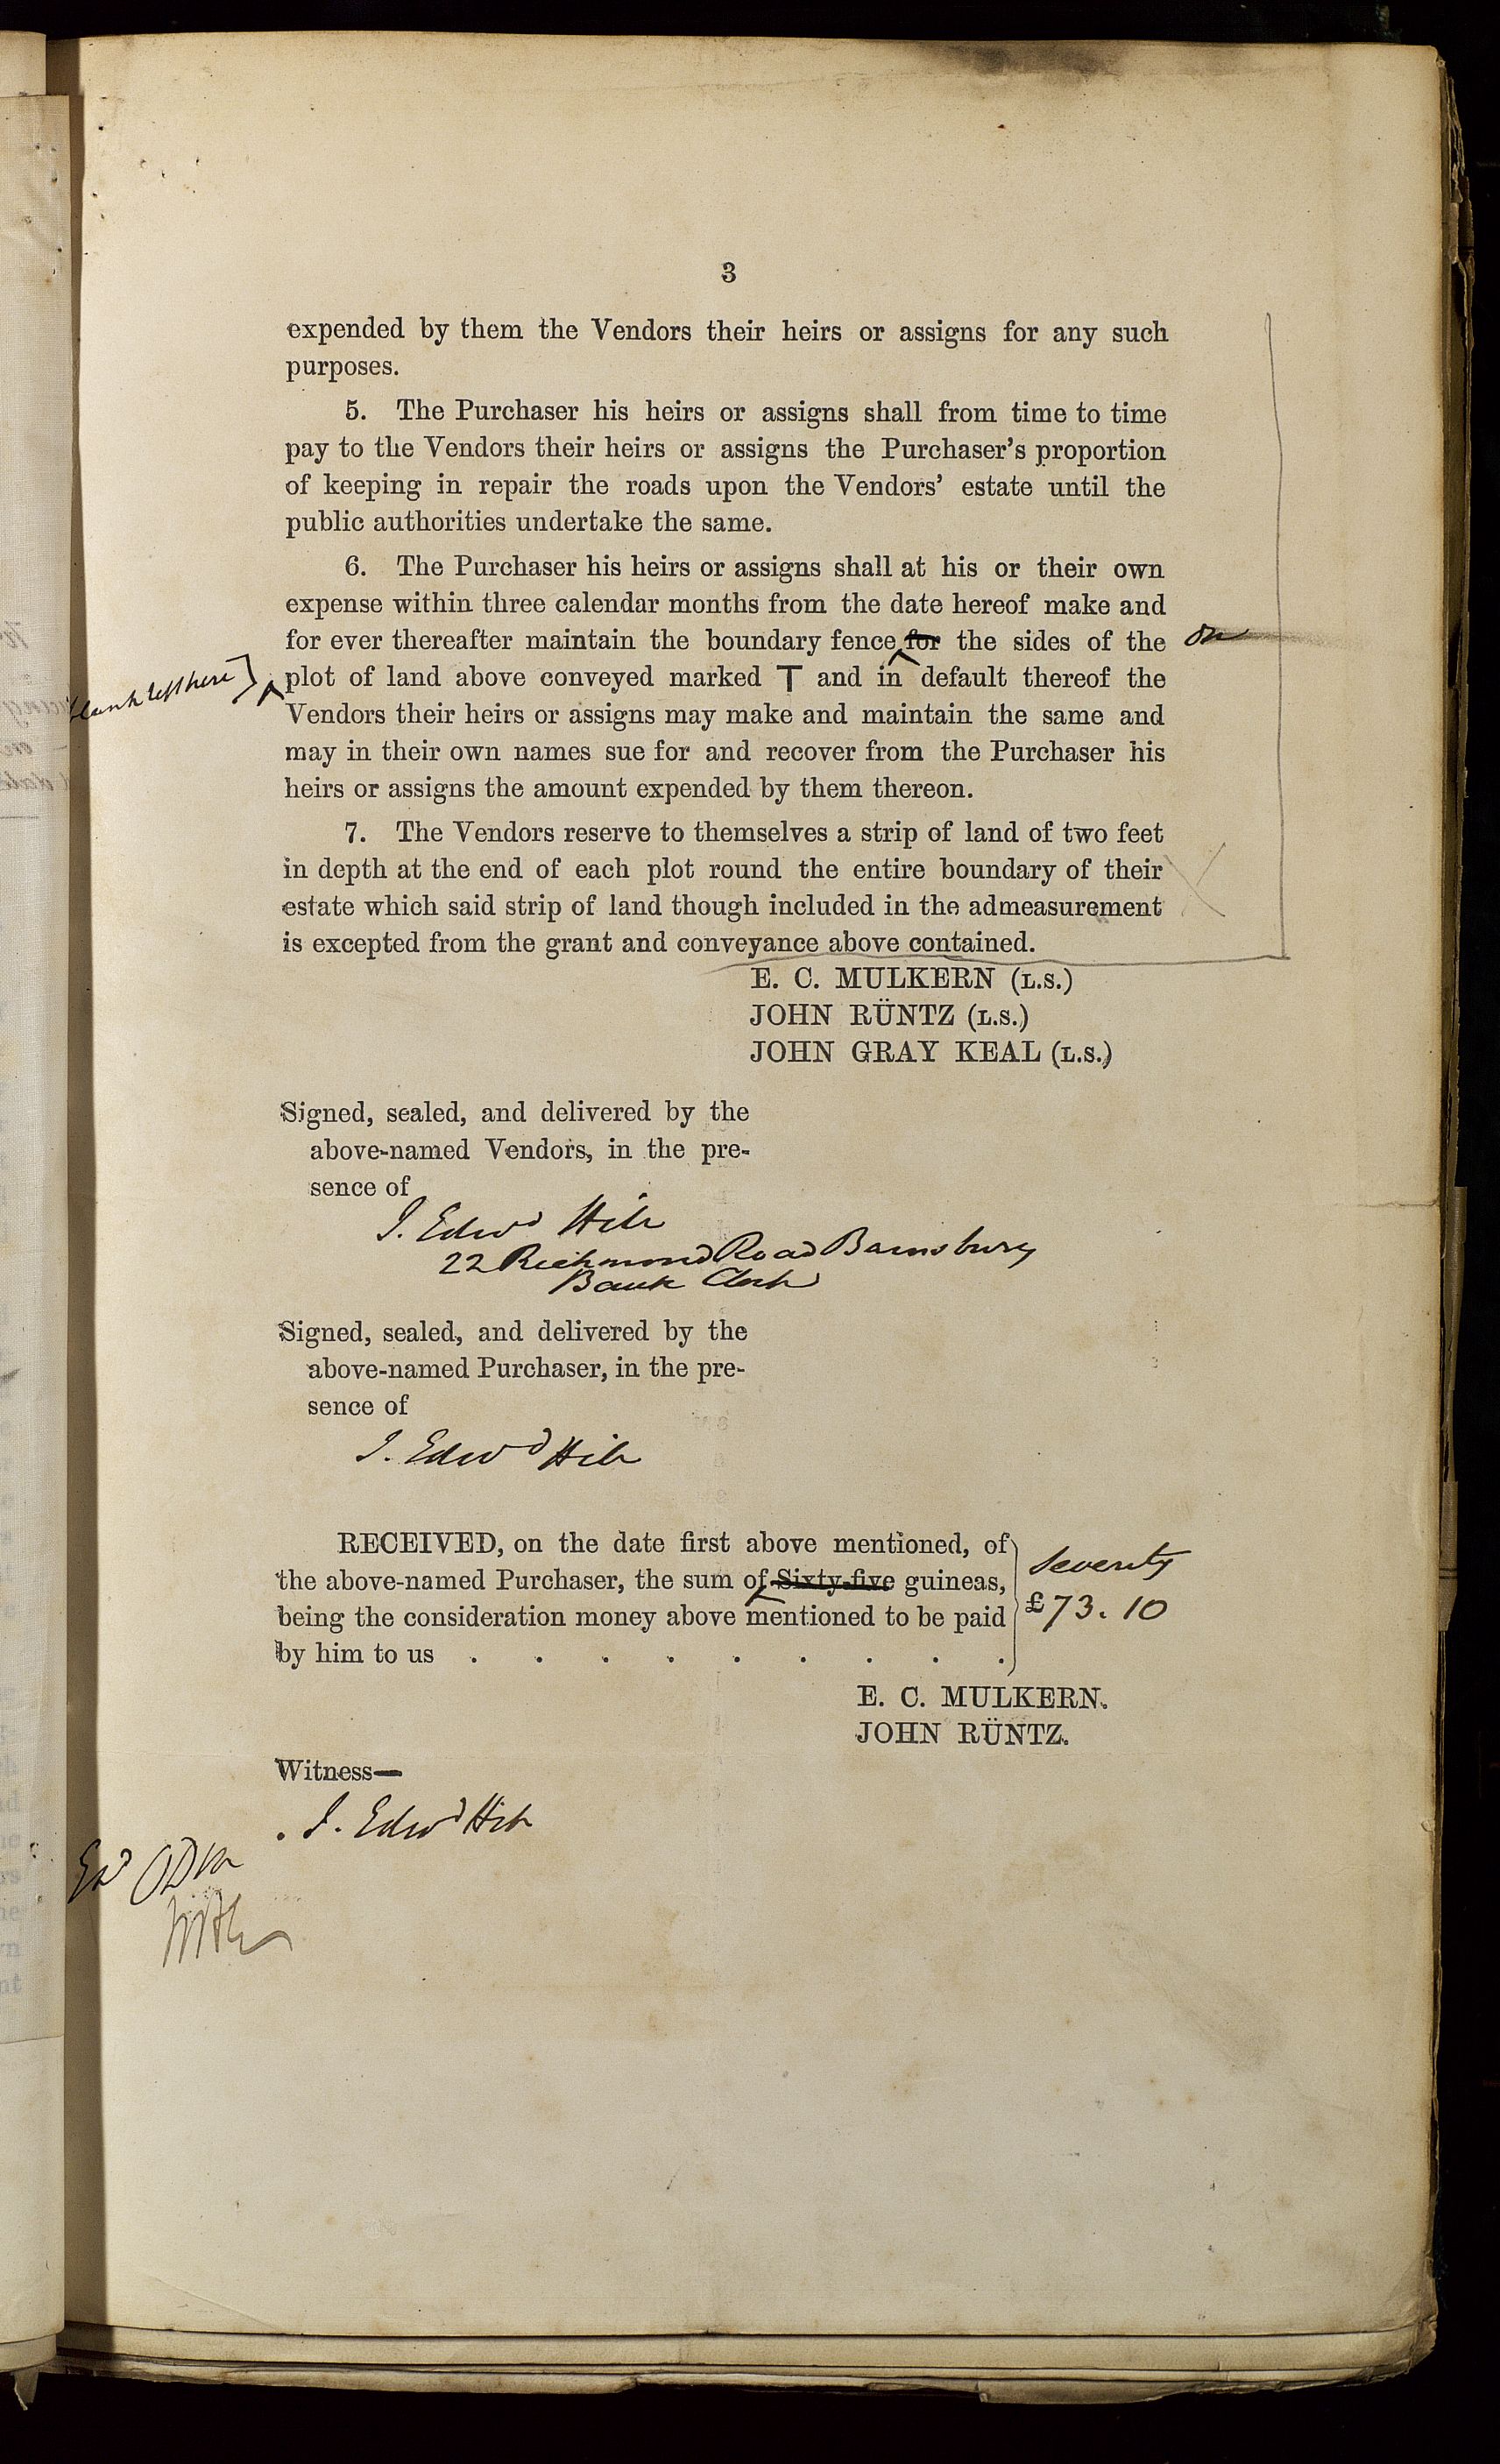 3
expended by them the Vendors their heirs or assigns for any such
purposes.
5. The Purchaser his heirs or assigns shall from time to time
pay to the Vendors their heirs or assigns the Purchaser's proportion
of keeping in repair the roads upon the Vendors' estate until the
public authorities undertake the same.
6. The Purchaser his heirs or assigns shall at his or their own
expense within three calendar months from the date hereof make and
for ever thereafter maintain the boundary fence for the sides of the on
left here] plot of land above conveyed marked T and in default thereof the
Vendors their heirs or assigns may make and maintain the same and
may in their own names sue for and recover from the Purchaser his
heirs or assigns the amount expended by them thereon.
7. The Vendors reserve to themselves a strip of land of two feet
in depth at the end of each plot round the entire boundary of their
estate which said strip of land though included in the admeasurement
is excepted from the grant and conveyance above contained.
E. C. MULKERN (L.S.)
JOHN RÜNTZ (L.S.)
JOHN GRAY KEAL (L.S.)
Signed, sealed, and delivered by the
above-named Vendors, in the pre-
sence of
Edwd
22 Richmond Road Barnsbury
Bank Clerk
Signed, sealed, and delivered by the
above-named Purchaser, in the pre-
sence of
Edwd
RECEIVED, on the date first above mentioned, of
the above-named Purchaser, the sum of Sixty-five guineas, Seventy
being the consideration money above mentioned to be paid £73. 10
by him to us . . . . . . . . .
E. C. MULKERN.
JOHN RÜNTZ.
Witness—
Edwd